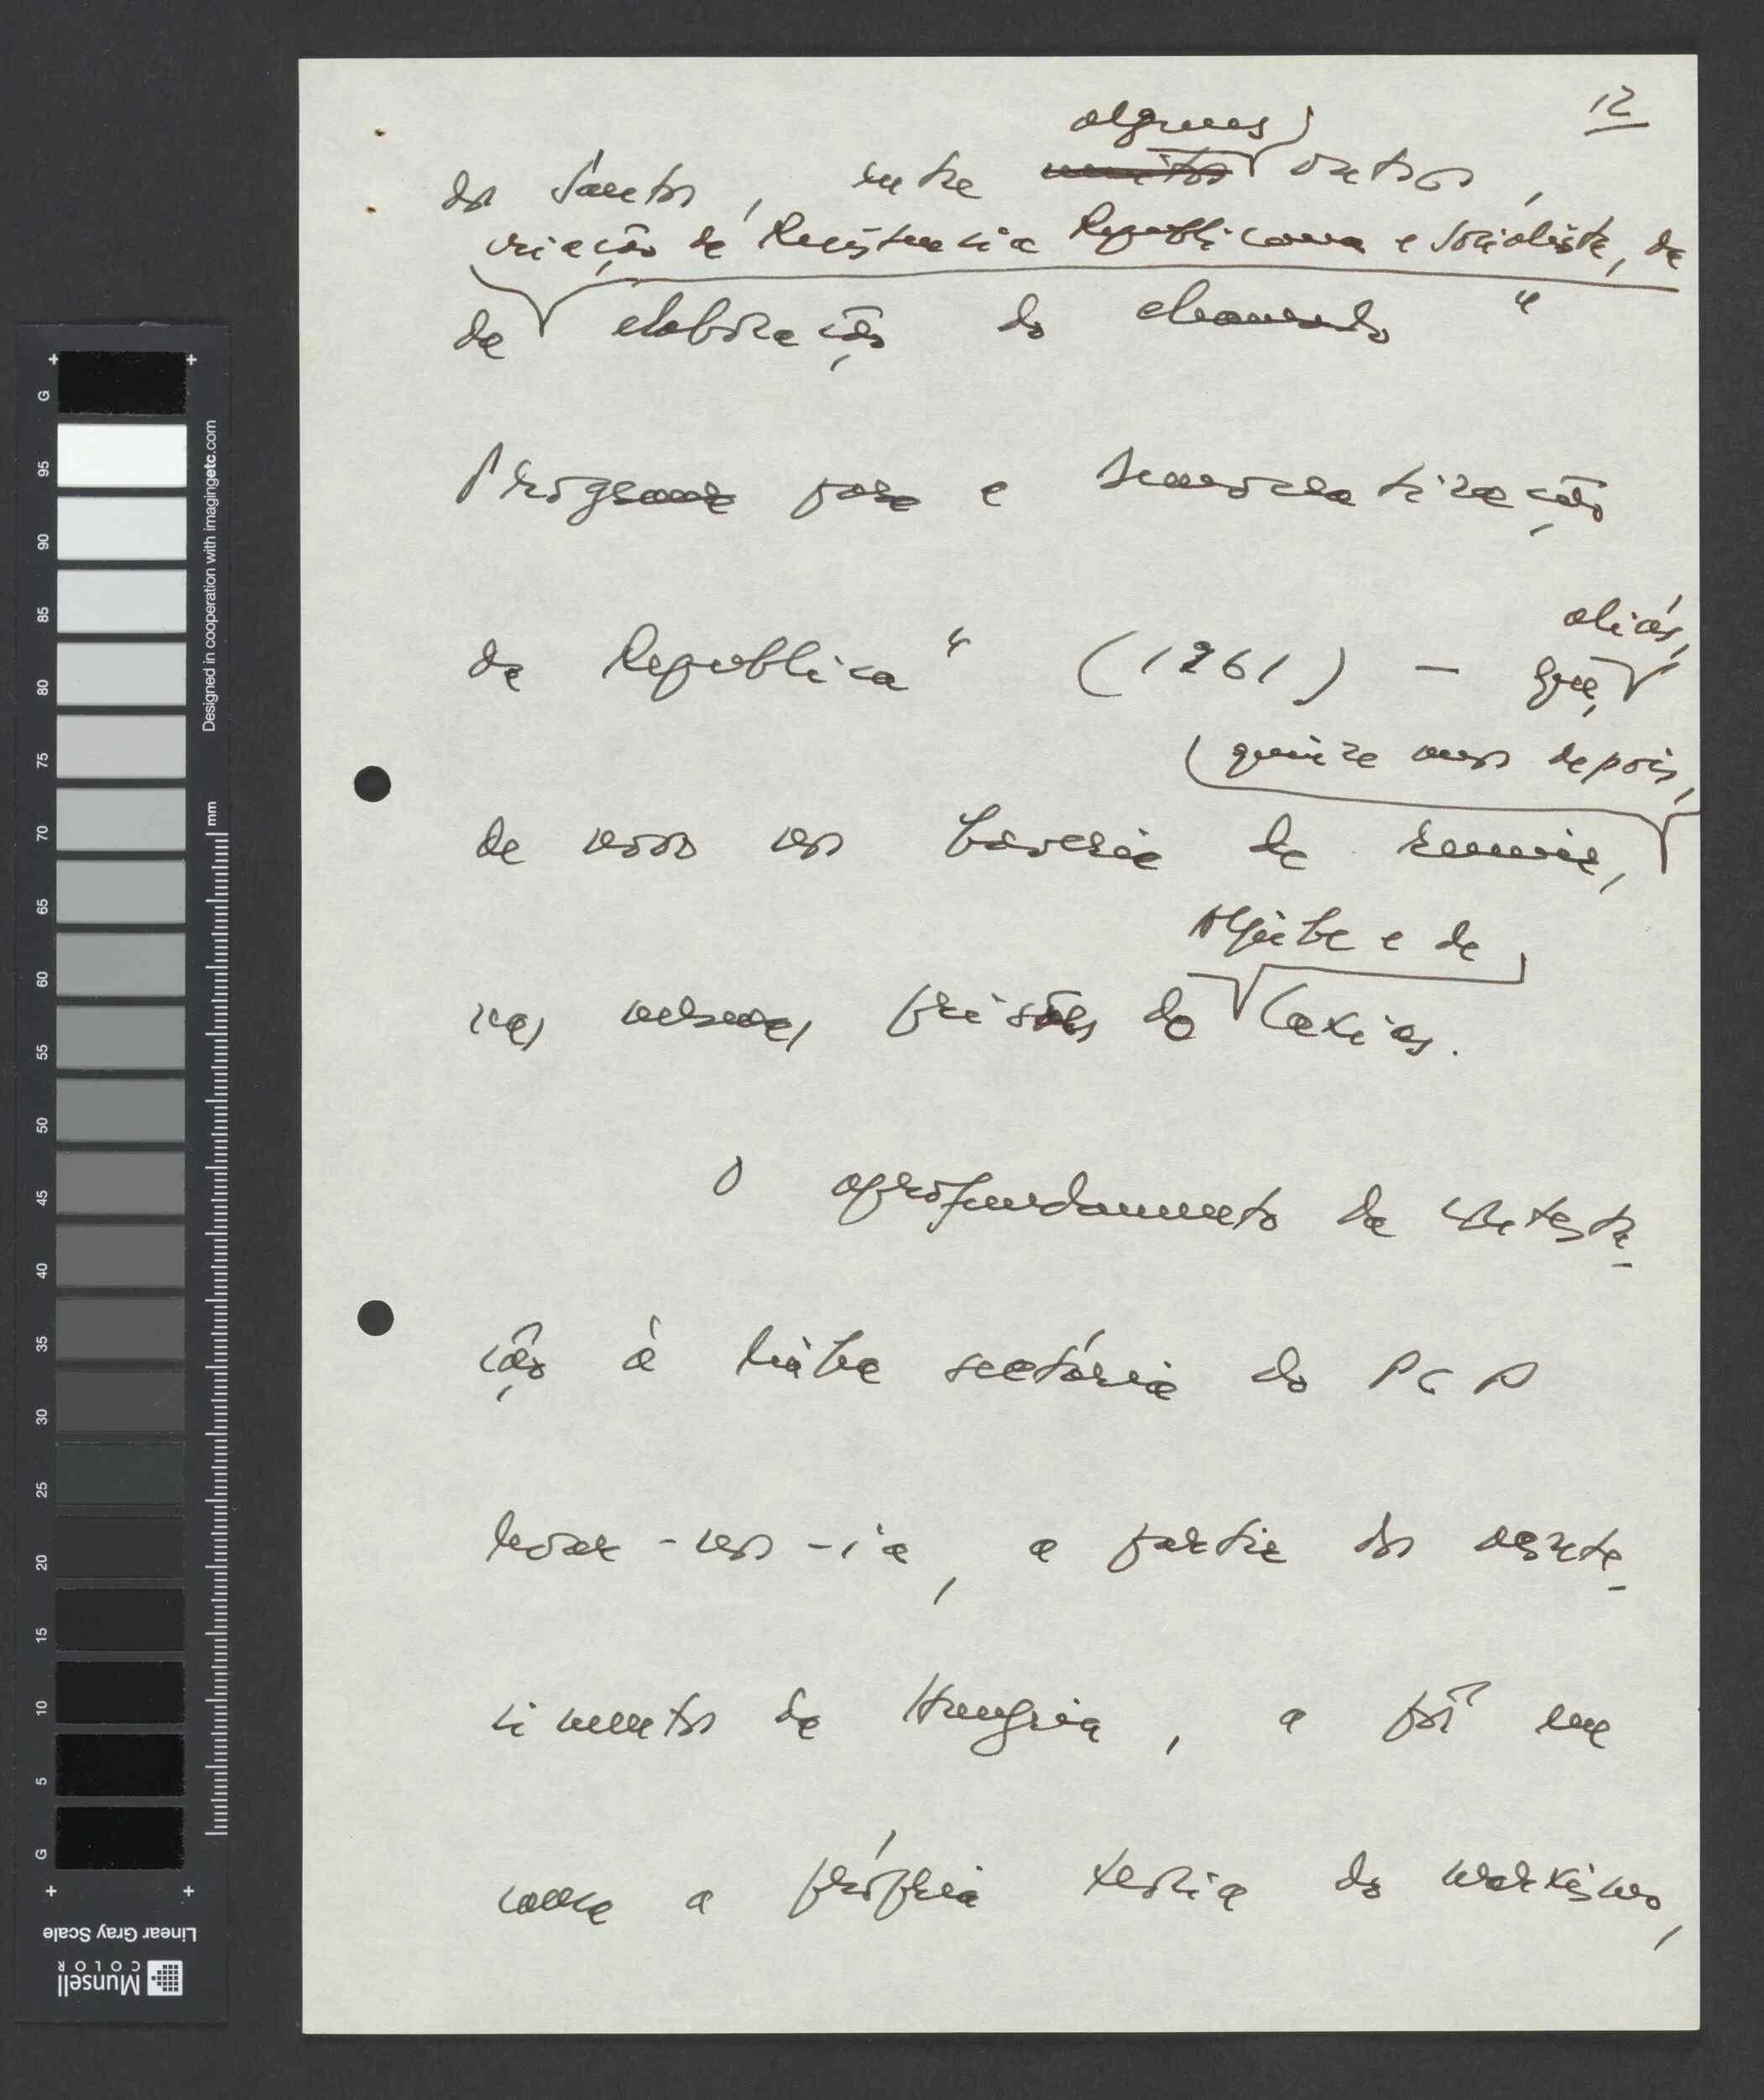 12
alguns
dos Santos, entre muitos outros,
criação da Resistência Republicana e Socialista, da
da elaboração do chamado "
Programa para a Democratização
da República" (1961) — que,
aliás,
quinze anos depois,
de novo nos haveria de reunir,
Aljube e de
nas mesmas prisões do Caxias.
O aprofundamento da contesta-
ção à linha sectária do PCP
levar-nos-ia, a partir dos aconte-
cimentos da Hungria, a pôr em
causa a própria teoria do marxismo,
G
95
90
85
80
75
70
65
60
55
50
45
40
35
30
25
20
15
10
5
G
Designed in cooperation with imagingetc.com
mm
Linear Gray Scale
Munsell
COLOR